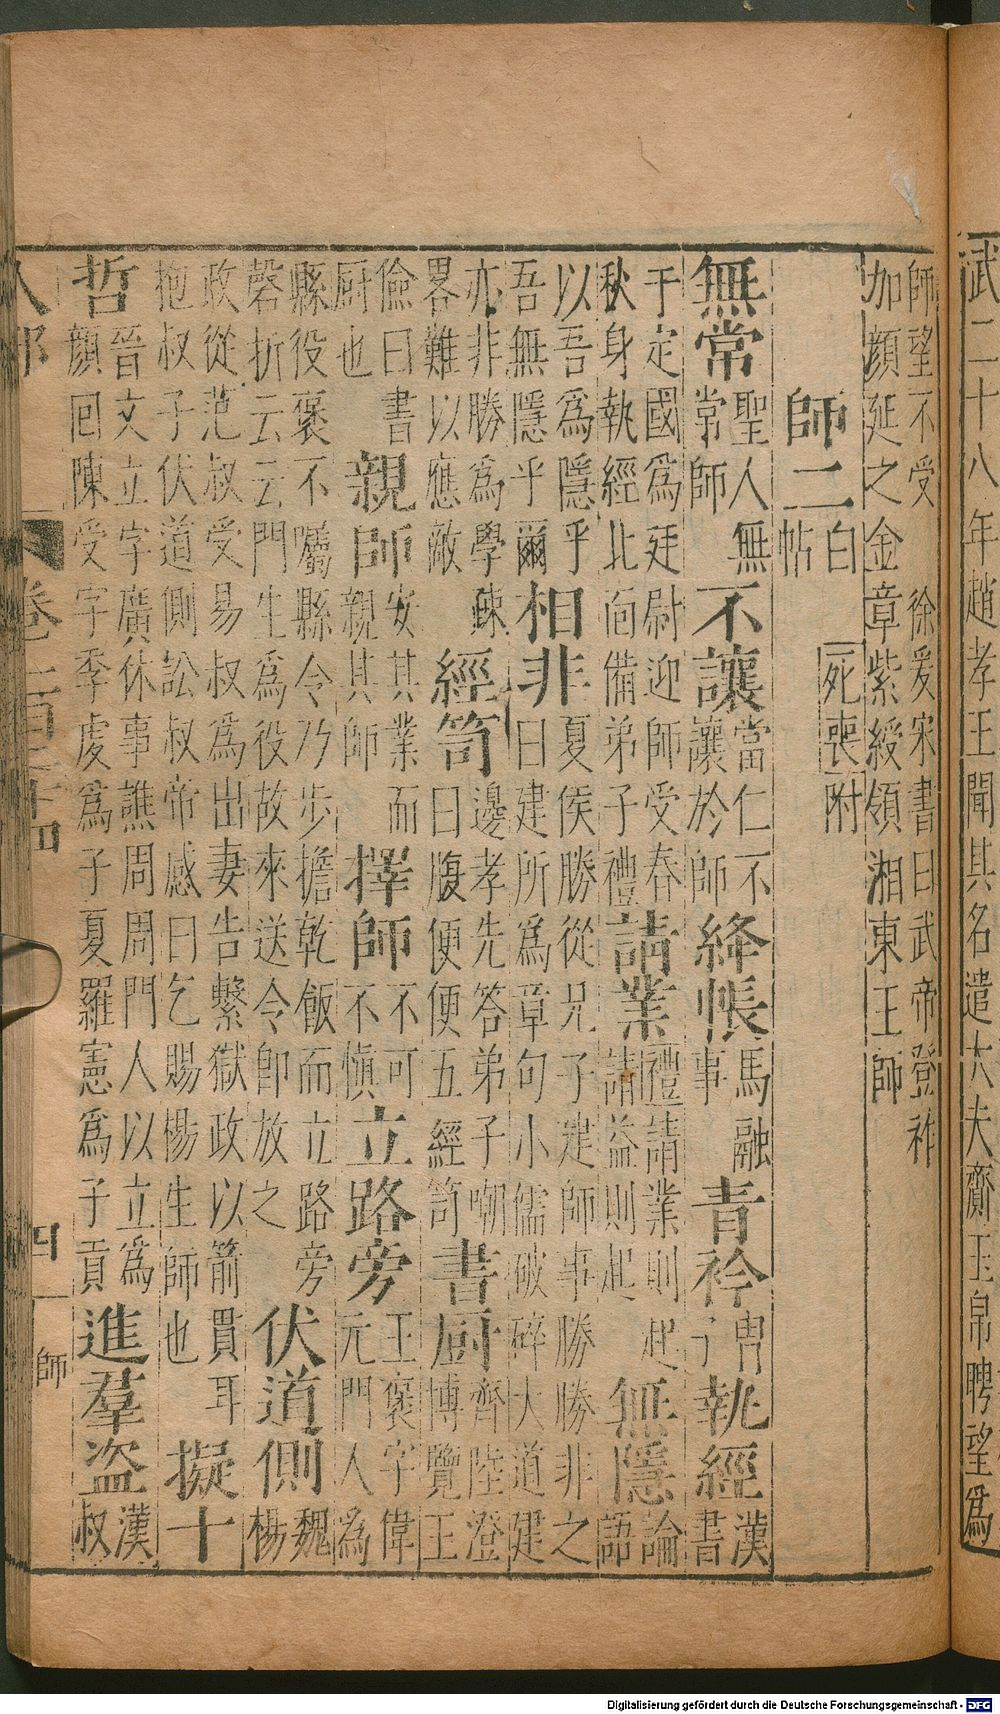 武二十八年趙孝王聞其名遣大夫齎玉帛聘望爲
師望不受　徐爰宋書曰武帝登祚
加顔延之金章紫綬領湘東王師
師二 白帖 死喪附
無常 聖人無常師 不讓 當仁不讓於師 絳帳 馬融事 青衿 胄子 執經 漢書
于定國爲廷尉迎師受春秋身執經北面備弟子禮 請業 禮請業則起請益則起 無隱 論語
以吾爲隱乎吾無隱乎爾 相非 夏侯勝從兄子建師事勝勝非之曰建所爲章句小儒破碎大道建
亦非勝爲學踈畧難以應敵 經笥 邊孝先答弟子嘲曰腹便便五經笥 書厨 齊陸澄博覽王
儉曰書厨也 親師 安其業而親其師 擇師 不可不慎 立路旁 王褒字偉元門人為
縣役褒不囑縣令乃步擔乾飯而立路旁磬折云云門生爲役故來送令卽放之 伏道側 魏楊
政從范叔受易叔爲出妻告繫獄政以箭貫耳抱叔子伏道側訟叔帝感曰乞賜楊生師也 擬十
哲 晉文立字廣休事譙周周門人以立爲顔回陳受字季虔爲子夏羅憲爲子貢 進羣盜 漢叔
人部 卷一百 十四 四 師
Digitalisierung gefördert durch die Deutsche Forschungsgemeinschaft - DFG